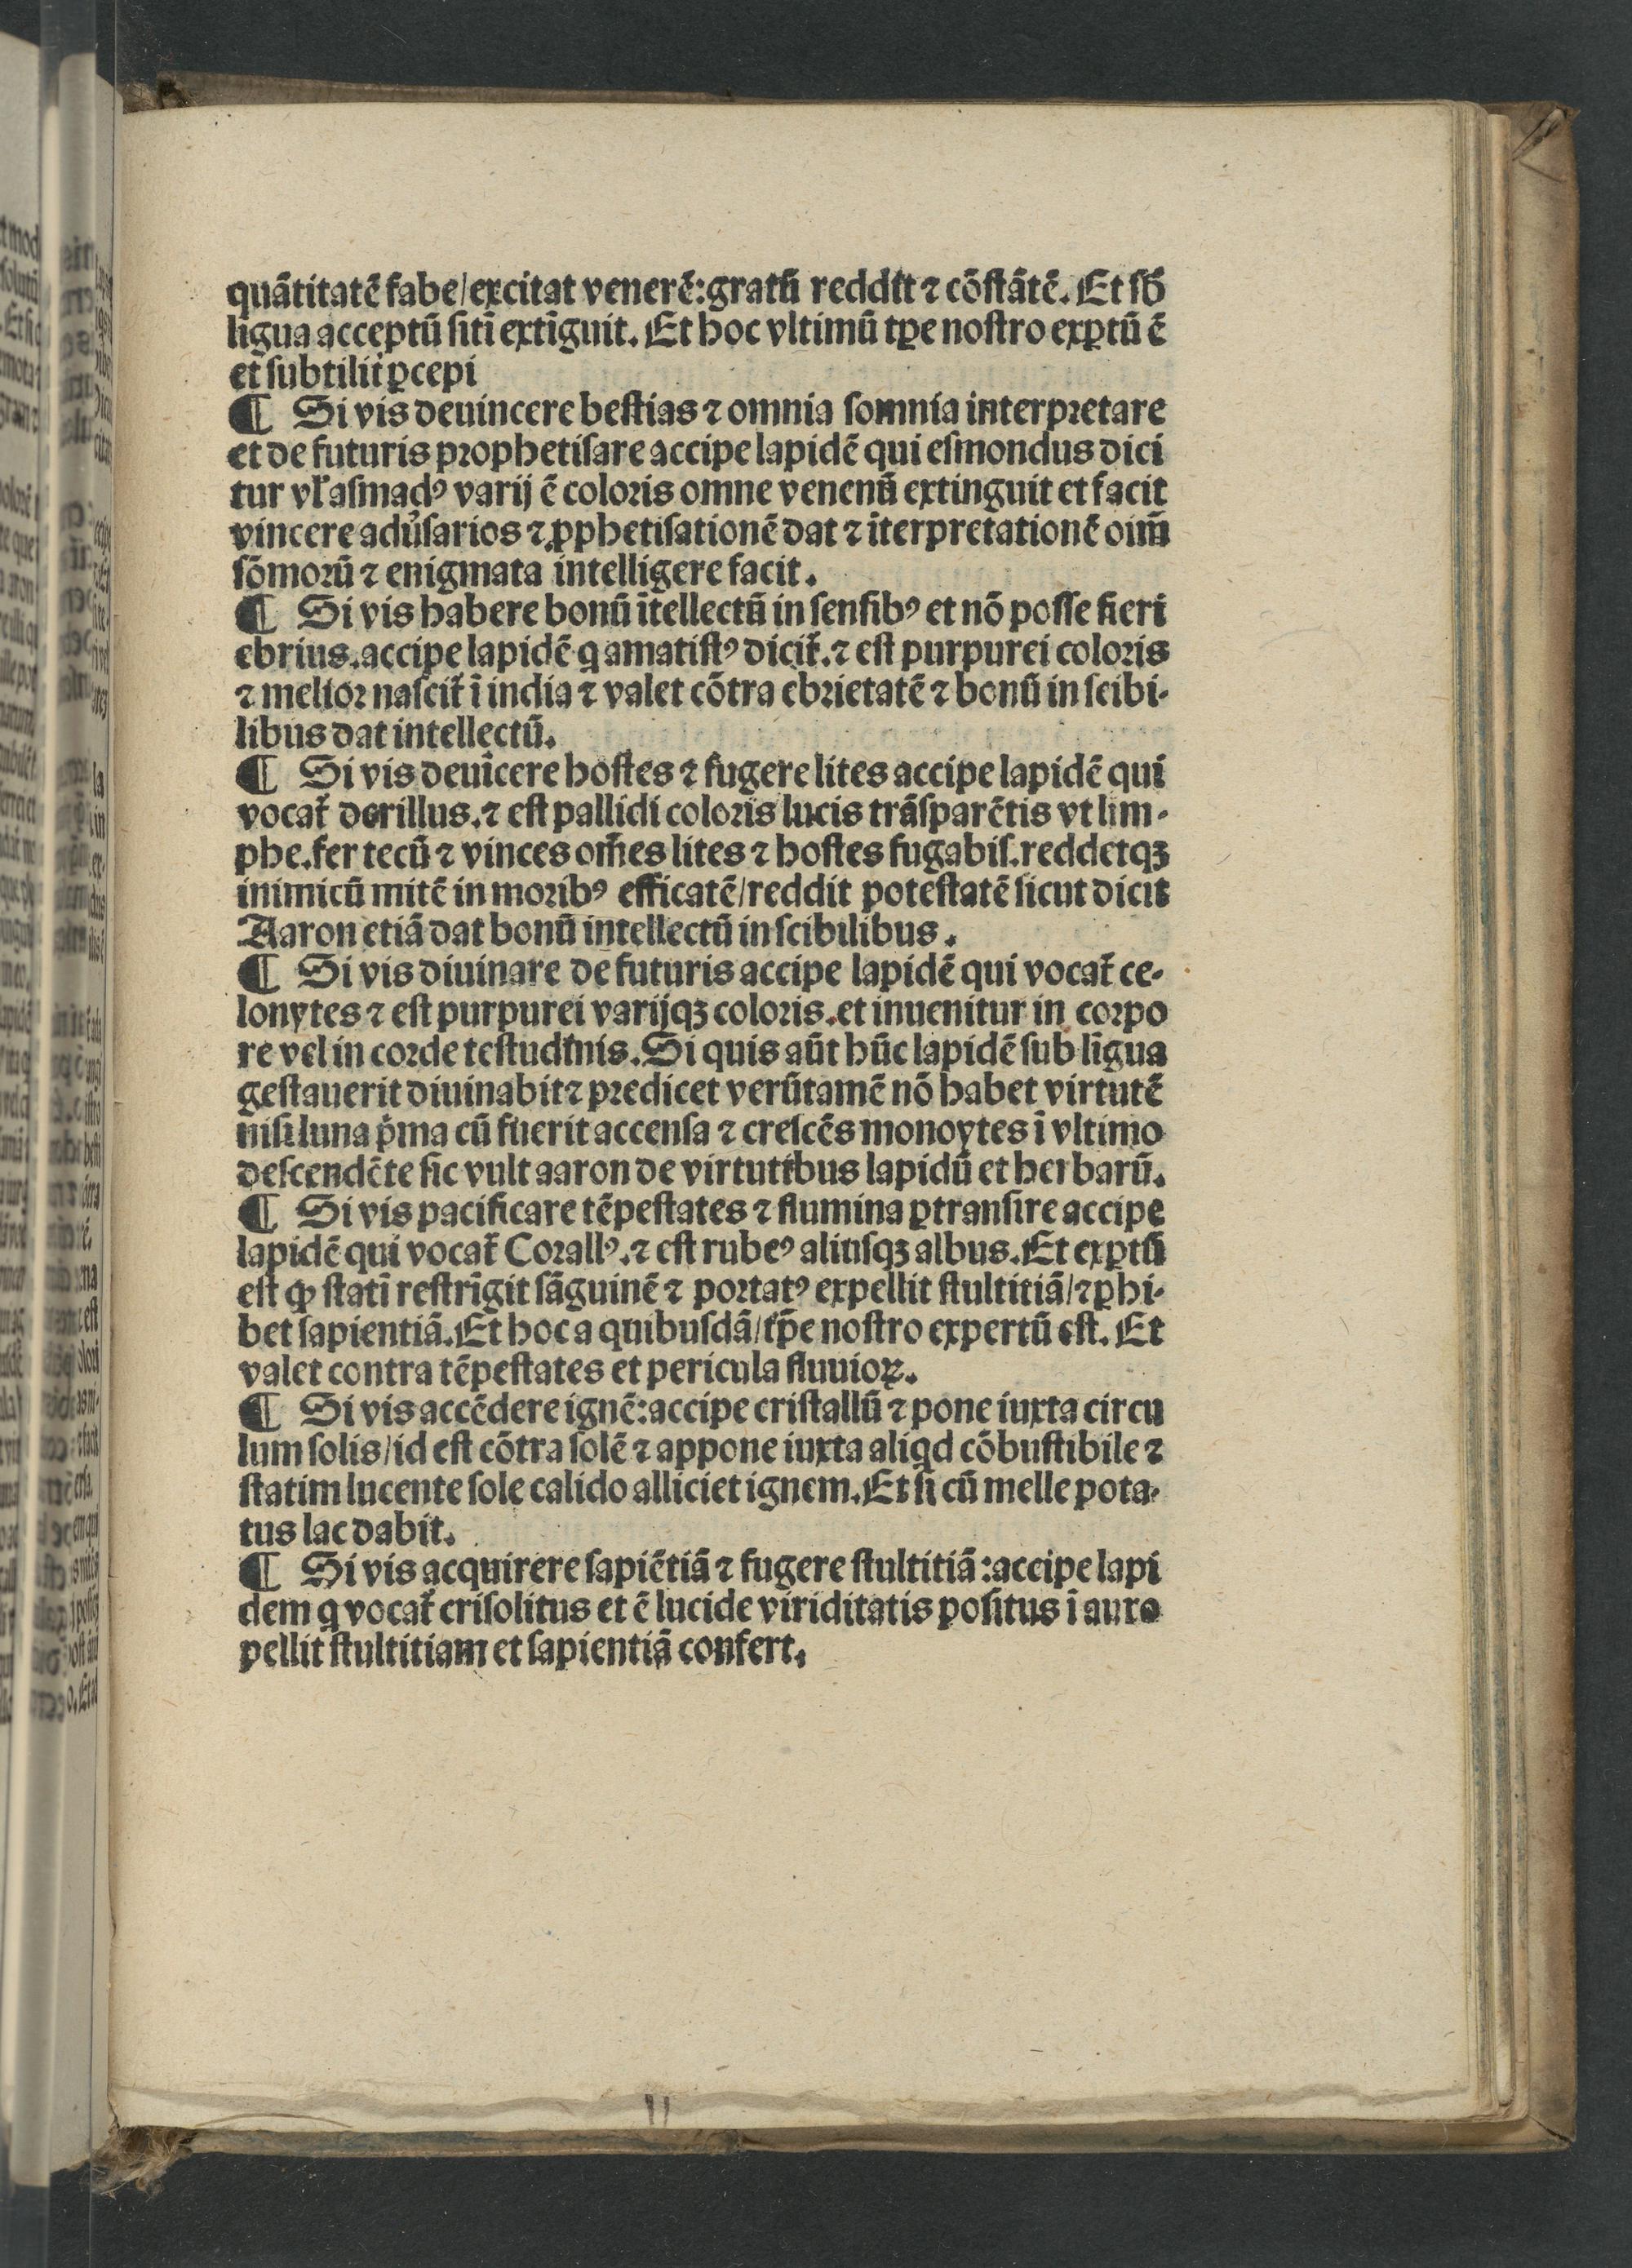 quātitatē fabe/excitat venerē:gratū reddit ⁊ cōstātē. Et sb̄
ligua acceptū sitī extīguit. Et hoc vltimū tꝑe nostro exꝑtū ē
et subtiliť ꝑcepi
¶ Si vis deuincere bestias ⁊ omnia somnia interpretare
et de futuris prophetisare accipe lapidē qui esmondus dici
tur vl̕ asmadꝰ varij ē coloris omne venenū extinguit et facit
vincere adu̓sarios ⁊ ꝓphetisationē dat ⁊ īterpretationē oim̄
sōmorū ⁊ enigmata intelligere facit.
¶ Si vis habere bonū ītellectū in sensibꝰ et nō posse fieri
ebrius.accipe lapidē q amatistꝰ dicit̕.⁊ est purpurei coloris
⁊ melior nascit̕ ī india ⁊ valet cōtra ebrietatē ⁊ bonū in scibi-
libus dat intellectū.
¶ Si vis deuīcere hostes ⁊ fugere lites accipe lapidē qui
vocat̕ derillus.⁊ est pallidi coloris lucis trāsparētis vt lim-
phe.fer tecū ⁊ vinces om̄es lites ⁊ hostes fugabis.reddetqꝫ
inimicū mitē in moribꝰ efficatē/reddit potestatē sicut dicit
Aaron etiā dat bonū intellectū in scibilibus.
¶ Si vis diuinare de futuris accipe lapidē qui vocat̕ ce-
lonytes ⁊ est purpurei varijqꝫ coloris.et inuenitur in corpo
re vel in corde testudinis.Si quis aūt hūc lapidē sub līgua
gestauerit diuinabit⁊ predicet verūtamē nō habet virtutē
nisi luna p̄ma cū fuerit accensa ⁊ crescēs monoytes ī vltimo
descendēte sic vult aaron de virtutibus lapidū et herbarū.
¶ Si vis pacificare tēpestates ⁊ flumina ꝑtransire accipe
lapidē qui vocat̕ Corallꝰ.⁊ est rubeꝰ aliusqꝫ albus.Et exꝑtū
est ꝙ statī restrīgit sāguinē ⁊ portatꝰ expellit stultitiā/⁊ꝑhi-
bet sapientiā.Et hoc a quibusdā/tp̄e nostro expertū est. Et
valet contra tēpestates et pericula fluuioꝝ.
¶ Si vis accēdere ignē:accipe cristallū ⁊ pone iuxta circu
lum solis/id est cōtra solē ⁊ appone iuxta aliqd cōbustibile ⁊
statim lucente sole calido alliciet ignem.Et si cū melle pota-
tus lac dabit.
¶ Si vis acquirere sapiētiā ⁊ fugere stultitiā:accipe lapi
dem q vocat̕ crisolitus et ē lucide viriditatis positus ī auro
pellit stultitiam et sapientiā confert.